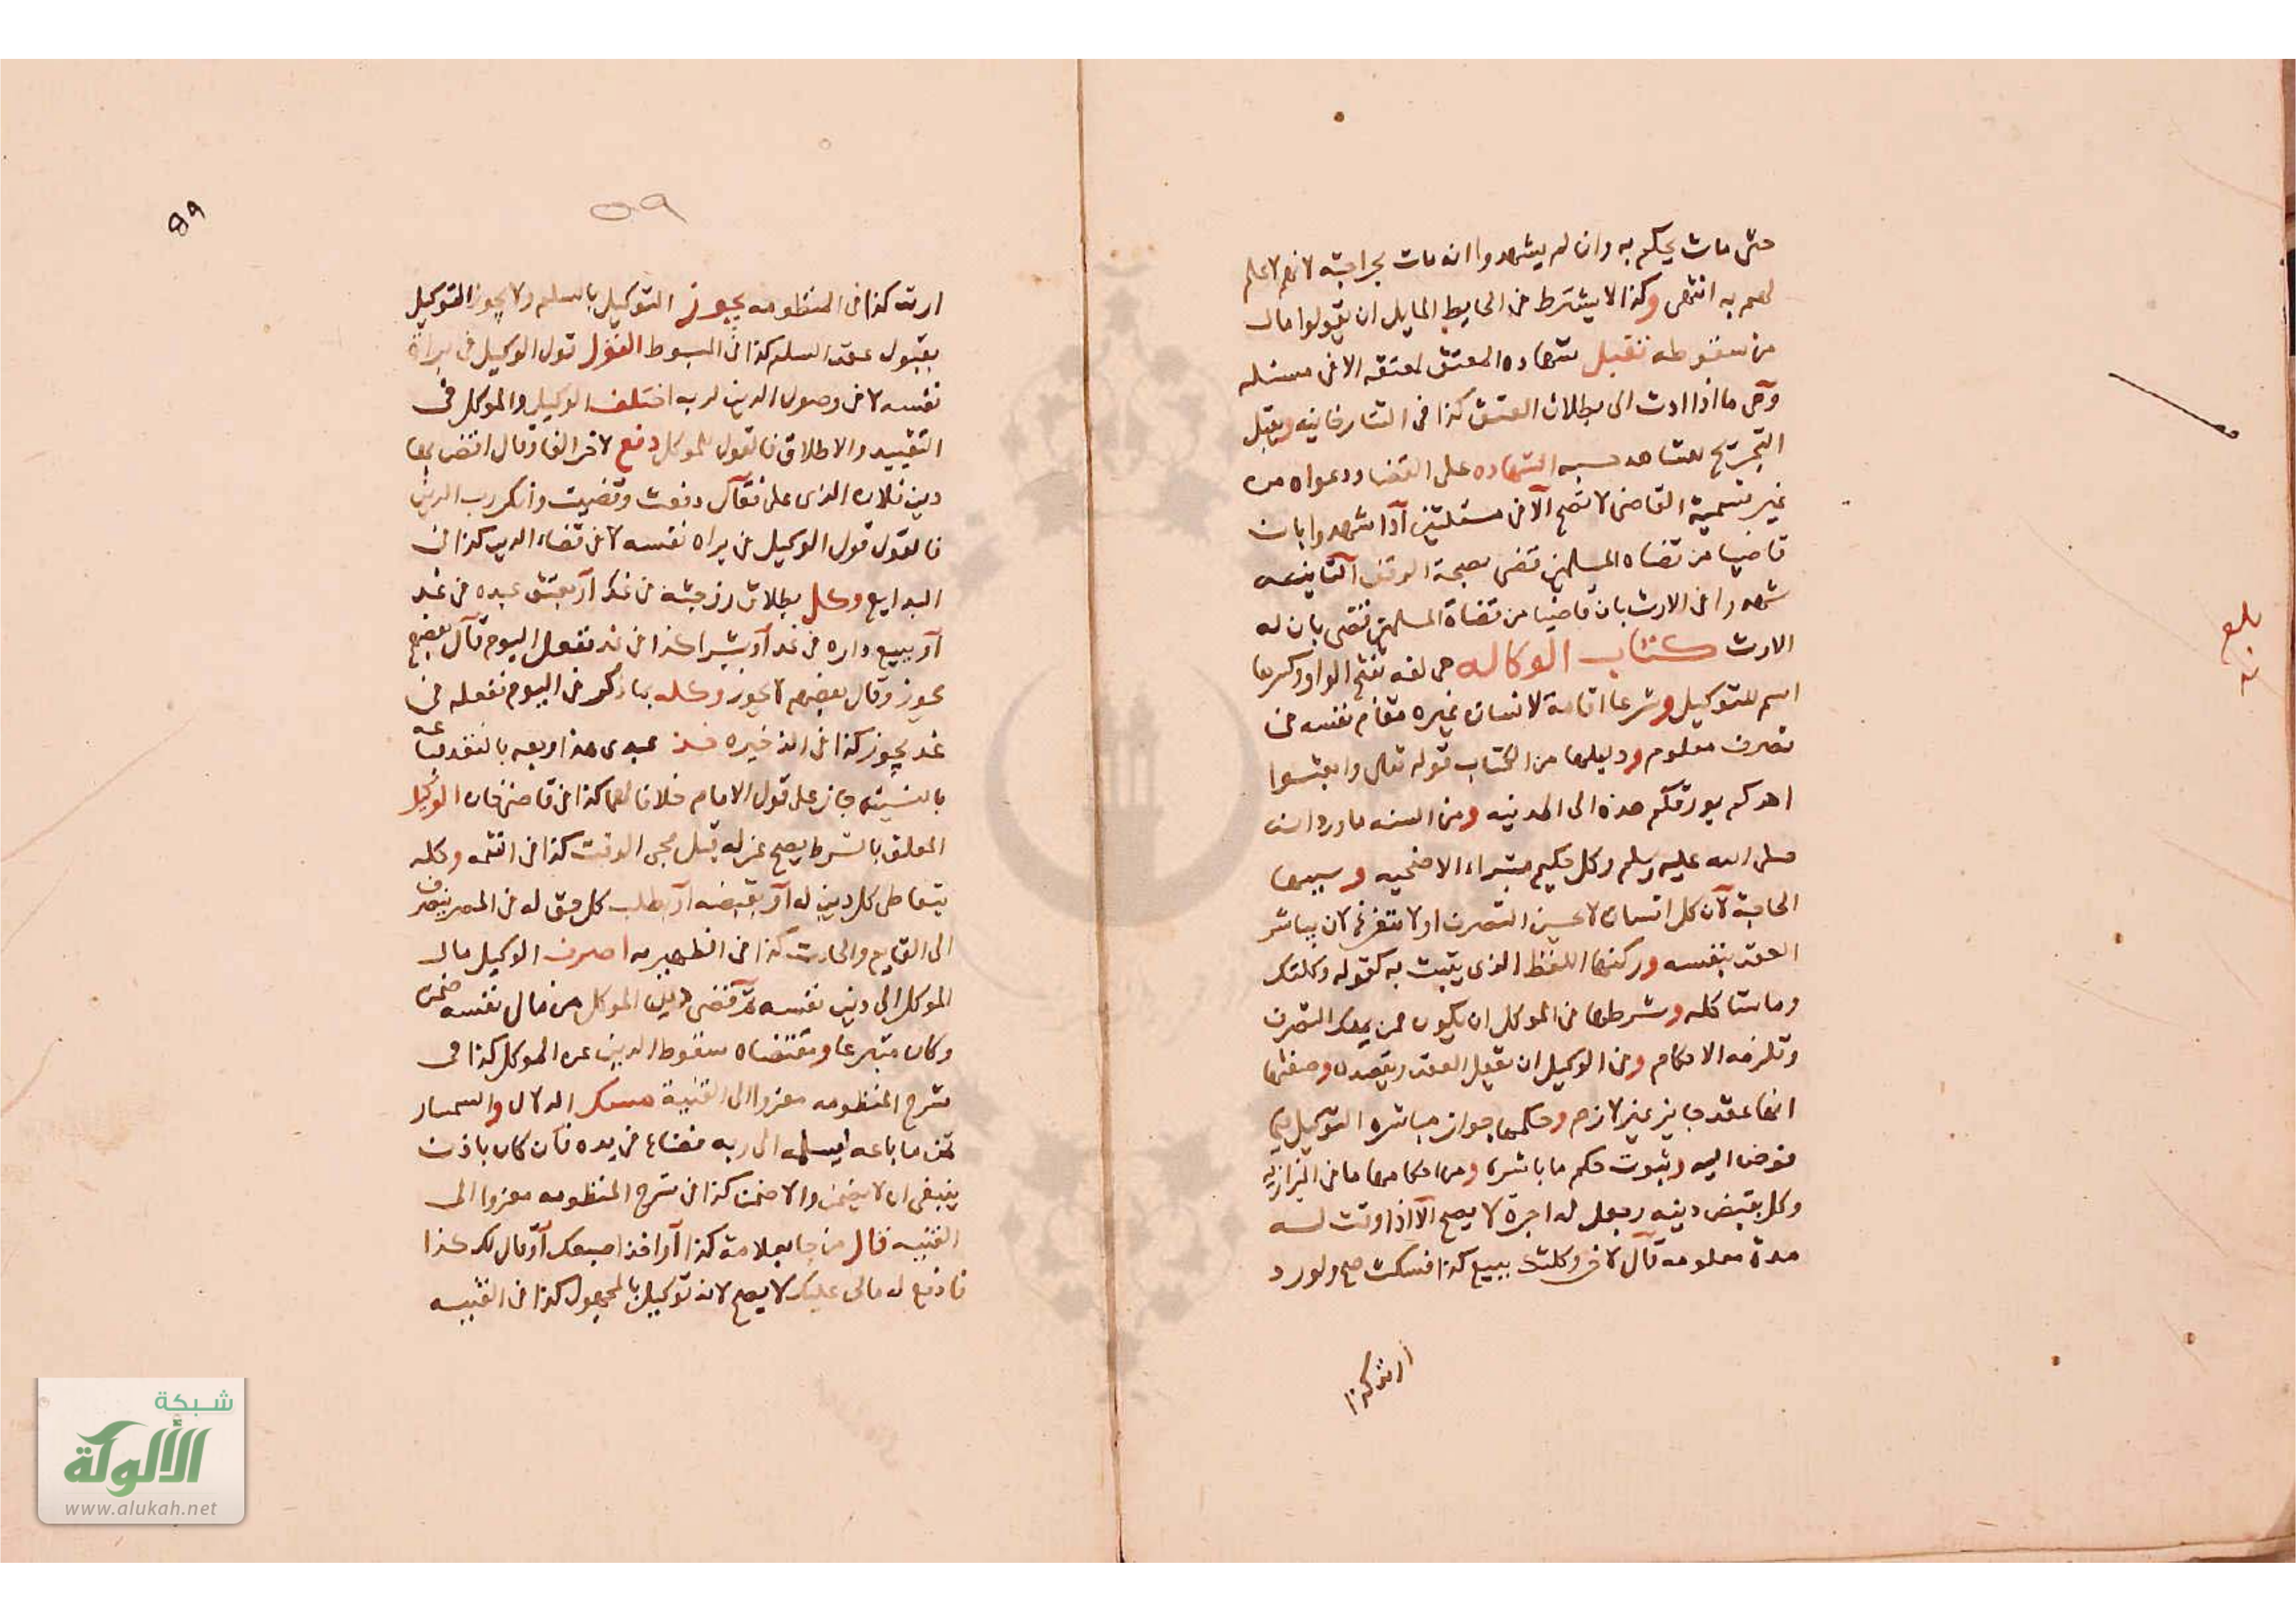 حتى مات يحكم به وان لم يشهدوا انه مات بجراحته لانهم لا علم
لهم به انتهى وكذا لا يشترط فى الحايط المايل ان يقولوا مات
من سقوطه تقبل شهاده المعتق لمعتقه الا فى مسئله
وهى ما اذا ادت الى بطلان العتق كذا فى التتارخانيه ويقبل
التجريح الشهاده على القضا ودعواه من
غير تسمية القاضى لا تصح الا فى مسئلتين اذا شهدوا بان
قاضيا من قضاه المسلمين قضى بصحة الوقف الثانيه
شهدوا فى الارث بان قاضيا من قضاة المسلمين قضى بان له
الارث كتاب الوكاله هى لغه بفتح الواو وكسرها
اسم للتوكيل وشرعا اقامة الانسان غيره مقام نفسه فى
تصرف معلوم ودليلها من الكتاب قوله تعالى وابعثوا
احدكم بورقكم هذه الى المدينه ومن السنه ما ورد انه
صلى الله عليه وسلم وكل حكيم بشراء الاضحيه وسببها
الحاجة لان كل انسان لا يحسن التصرف او لا يتفرغ لان يباشر
العقد بنفسه وركنها اللفظ الذى يثبت به كقوله وكلتك
وما شاكله وشرطها فى الموكل ان يكون ممن يملك التصرف
وتلزمه الاحكام وفى الوكيل ان يعقل العقد ويقصده وصفتها
انها عقد جايز غير لازم وحكمها جواز مباشره التوكيل فيما
فوض اليه وثبوت حكم ما باشره ومن احكامها ما فى البزازيه
وكل بقبض دينه وجعل له اجرة لا يصح الا اذا وقت له
مدة معلومه قال لاخر وكلتك ببيع كذا فسكت صح ولو رد
ارتد كذا
بلغ
89
٥٩
ارتد كذا فى المنظومه يجوز التوكيل بالسلم ولا يجوز التوكيل
بقبول عقد السلم كذا فى المبسوط القول قول الوكيل فى براة
نفسه لا فى وصول الدين لربه اختلف الوكيل والموكل فى
التقييد والاطلاق فالقول للموكل دفع لاخر الفا وقال اقض بها
دين فلان الذى على فقال دفعت وقضيت وانكر رب الدين
فالقول قول الوكيل فى براه نفسه لا فى قضاء الدين كذا فى
البدايع وكل بطلاق زوجته فى غد او بعتق عبده فى غد
او ببيع داره فى غد او بشرا كذا فى غد ففعل اليوم قال بعضهم
يجوز وقال بعضهم لا يجوز وكله بما ذكر فى اليوم ففعله فى
غد يجوز كذا فى الذخيره خذ عبدى هذا وبعه بالنقد فباعه
بالنسيئه جاز على قول الامام خلافا لهما كذا فى قاضى خان الوكيل
المعلق بالشرط يصح عزله قبل مجى الوقت كذا فى وكله
بتعاطى كل دين له او بقبضه او بطلب كل حق له فى المصر ينصرف
الى القايم والحادث كذا فى الظهيريه اصرف الوكيل مال
الموكل الى دين نفسه ثم قضى دين الموكل من مال نفسه ضمن
وكان متبرعا ومقتضاه سقوط الدين عن الموكل كذا فى
شرح المنظومه معزوا الى القنية مسك الدلال والسمسار
ثمن ما باعه ليسلمه الى ربه فضاع فى يده فان كان باذن
ينبغى ان لا يضمن والا ضمن كذا فى شرح المنظومه معزوا الى
القنيه قال من جا بعلامة كذا او اخذ اصبعك او قال لك كذا
فادفع له مالى عليك لا يصح لانه توكيل بالمجهول كذا فى القنيه
شبكة
الألوكة
www.alukah.net